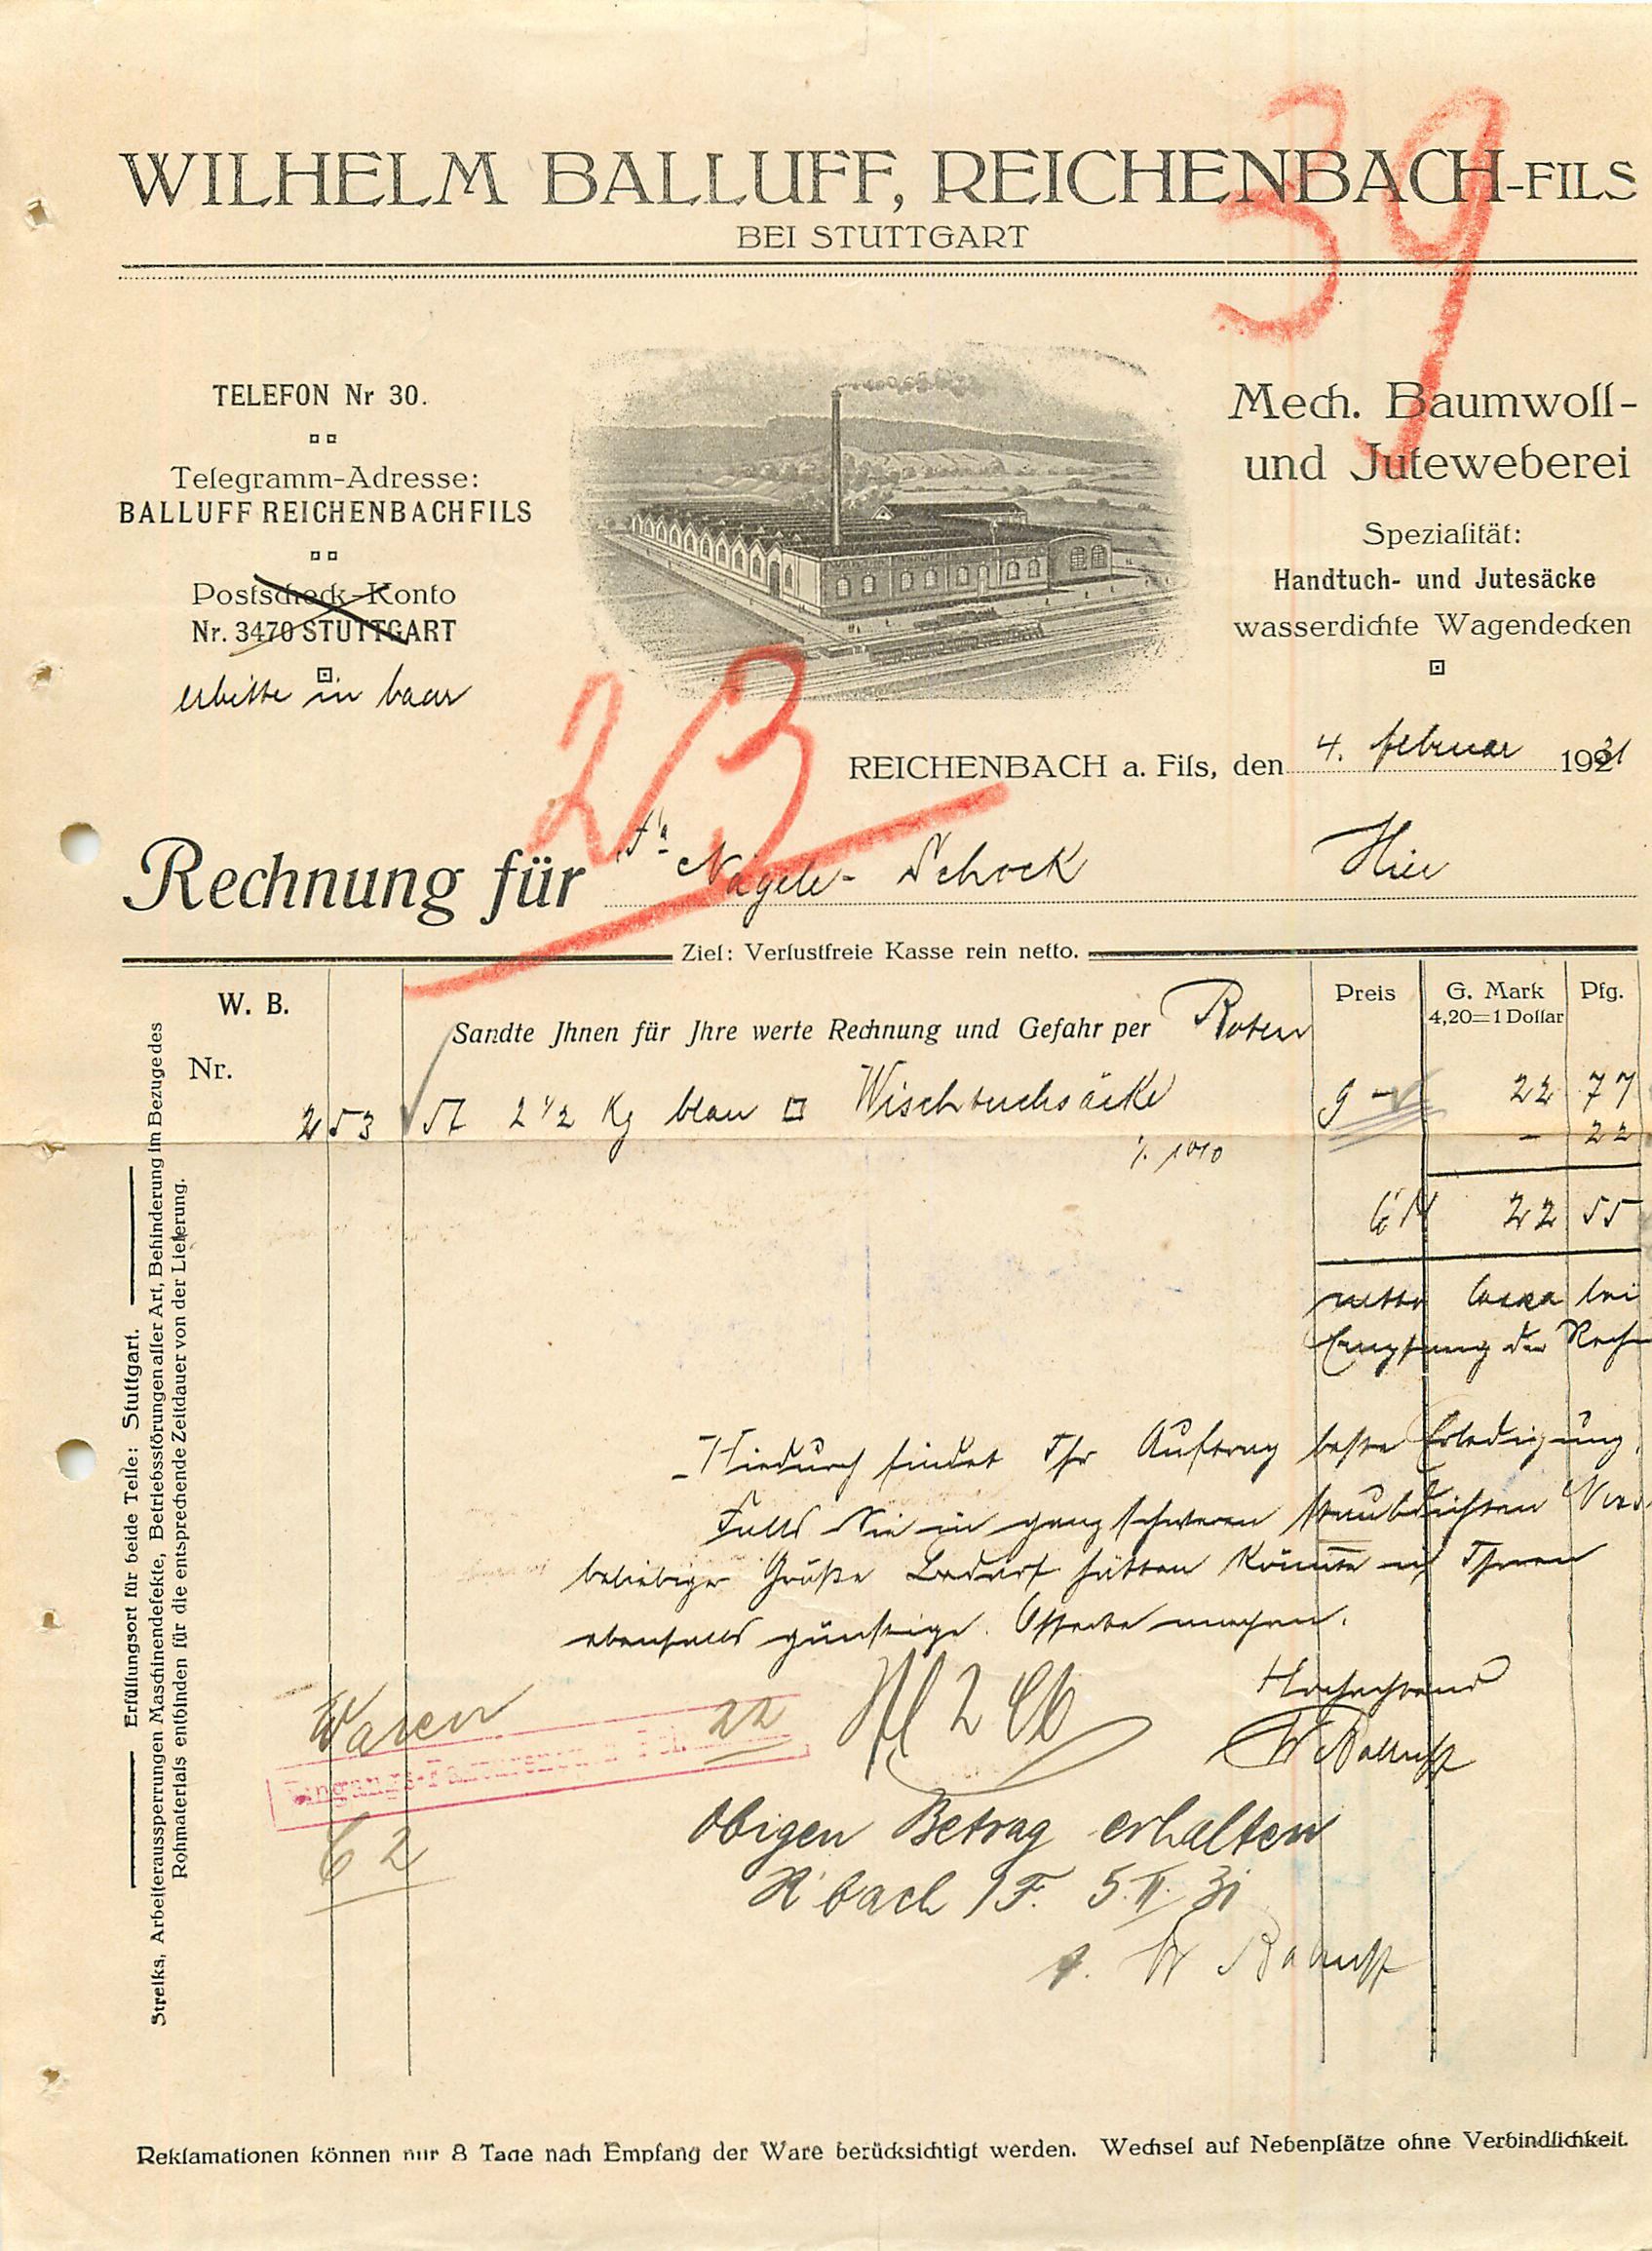 39
WILHELM BALLUFF, REICHENBACH-FILS
BEI STUTTGART
TELEFON Nr 30.
Telegramm-Adresse:
BALLUFF REICHENBACHFILS
Postscheck-Konto
Nr. 3470 STUTTGART
erbitte in baar
Mech. Baumwoll-
und Juteweberei
Spezialität:
Handtuch- und Jutesäcke
wasserdichte Wagendecken
23
REICHENBACH a. Fils, den 4. Februar 1931
Rechnung für Fa Nägele-Schock Hier
Ziel: Verlustfreie Kasse rein netto.
W. B.
Nr.
Sandte Jhnen für Jhre werte Rechnung und Gefahr per Boten
Preis
G. Mark
4,20=1 Dollar
Pfg.
253 2 1/2 Kg blau Wischtuchsäcke 9 - 22 77
- 22
GM 22 55
netto cassa bei
Empfang der Rech
Hiedurch findet Ihr Auftrag beste Erledigung.
Falls Sie in ganz schweren staubdichten
beliebiger Größe Bedarf hätten könnte ich Ihnen
ebenfalls günstige Offerte machen.
Hochachtend
W Balluff
Waren
22
Eingangs-
62
Obigen Betrag erhalten
R'bach /F. 5.II.31
W Balluff
Erfüllungsort für beide Teile: Stuttgart.
Streiks, Arbeiteraussperrungen Maschinendefekte, Betriebsstörungen aller Art, Behinderung im Bezuge des
Rohmaterials entbinden für die entsprechende Zeitdauer von der Lieferung.
Reklamationen können nur 8 Tage nach Empfang der Ware berücksichtigt werden. Wechsel auf Nebenplätze ohne Verbindlichkeit.